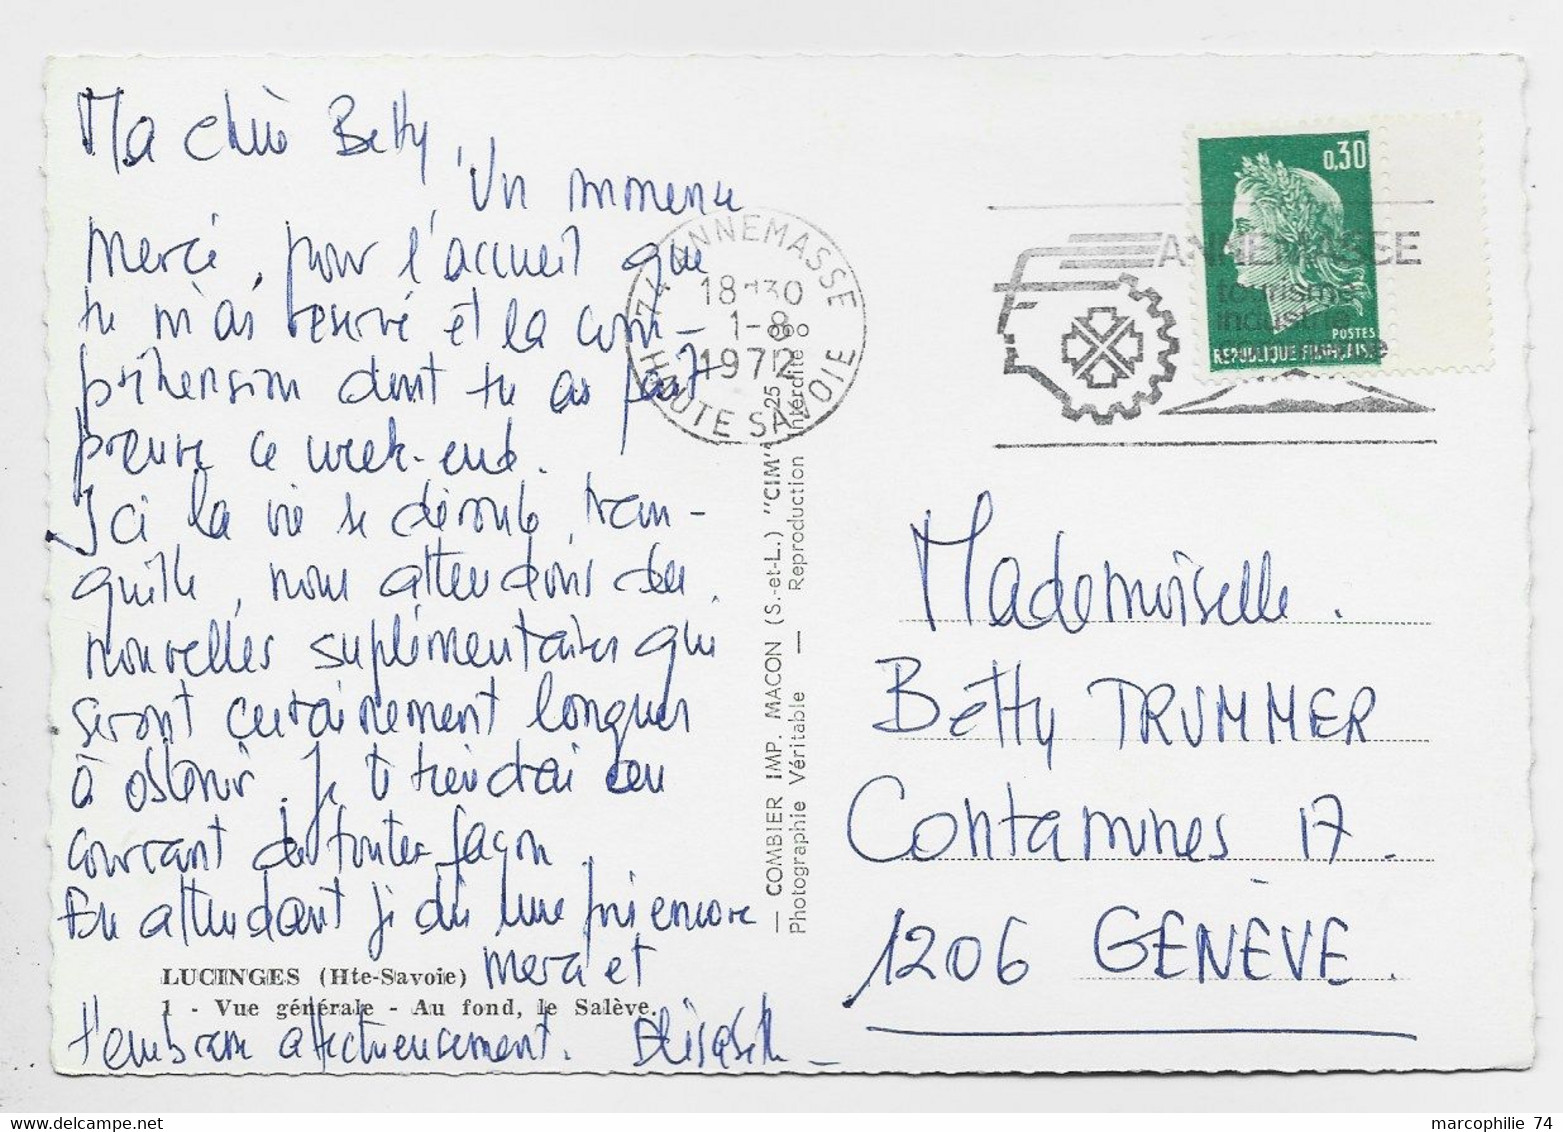 Ma chère Betty,
Un immense
merci, pour l'accueil que
tu m'as réservé et la com-
préhension dont tu as fait
preuve ce week-end.
Ici la vie se déroule, tran-
quille, nous attendons des
nouvelles suplémentaires qui
seront certainement longues
à obtenir. Je te tiendrai au
courant de toutes façon.
En attendant je dis une fois encore
merci et
t'embrasse affectueusement. Elisabeth
LUCINGES (Hte-Savoie)
1 - Vue générale - Au fond, le Salève.
— COMBIER IMP. MACON (S.-et-L.) "CIM"
Photographie Véritable — Reproduction interdite
74 ANNEMASSE
18H30
1-8
1972
HAUTE SAVOIE
ANNEMASSE
tourisme
industrie
0,30
POSTES
REPUBLIQUE FRANÇAISE
Mademoiselle.
Betty TRUMMER
Contamines 17.
1206 GENÈVE.
marcophilie 74